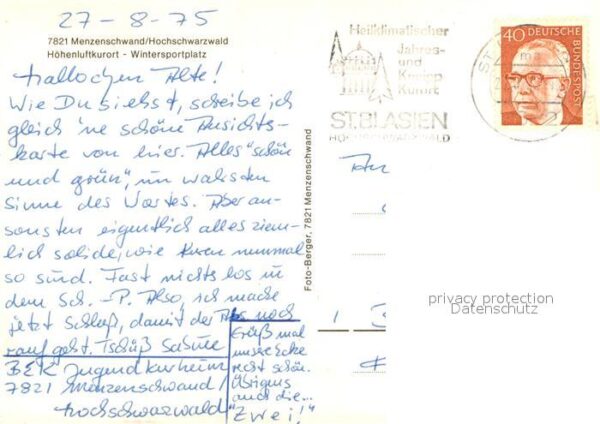 27-8-75
7821 Menzenschwand/Hochschwarzwald
Höhenluftkurort - Wintersportplatz
Hallochen Alte!
Wie Du siehst, schreibe ich
gleich 'ne schöne Ansichts-
karte von hier. Alles "schön
und grün", im wahrsten
Sinne des Wortes. Aber an-
sonsten eigentlich alles ziem-
lich solide, wie Kuren nunmal
so sind. Fast nichts los in
dem Sch. -P. Also, ich mache
jetzt Schluß, damit der noch
rauf geht. Tschüß Sabine
BEK Jugendkurheim
7821 Menzenschwand/
Hochschwarzwald
Grüß mal
unsre Ecke
recht schön.
Übrigens
auch die...
"Zwei!"
Foto-Berger, 7821 Menzenschwand
Heilklimatischer
Jahres-
und
Kneipp
Kurort
ST. BLASIEN
HOCHSCHWARZWALD
40 DEUTSCHE
BUNDESPOST
An
privacy protection
Datenschutz